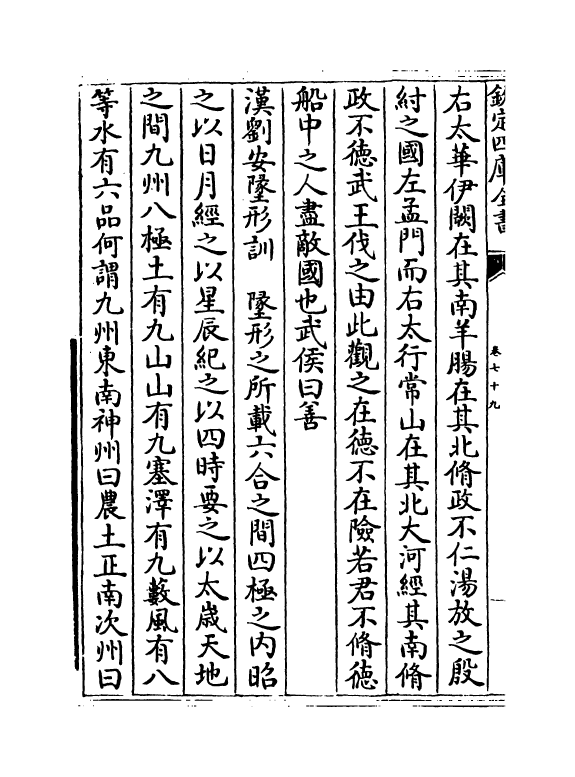 欽定四庫全書
卷七十九
右太華伊闕在其南羊腸在其北脩政不仁湯放之殷
紂之國左孟門而右太行常山在其北大河經其南脩
政不德武王伐之由此觀之在德不在險若君不脩德
船中之人盡敵國也武侯曰善
漢劉安墬形訓　墬形之所載六合之間四極之内昭
之以日月經之以星辰紀之以四時要之以太歲天地
之間九州八極土有九山山有九塞澤有九藪風有八
等水有六品何謂九州東南神州曰農土正南次州曰